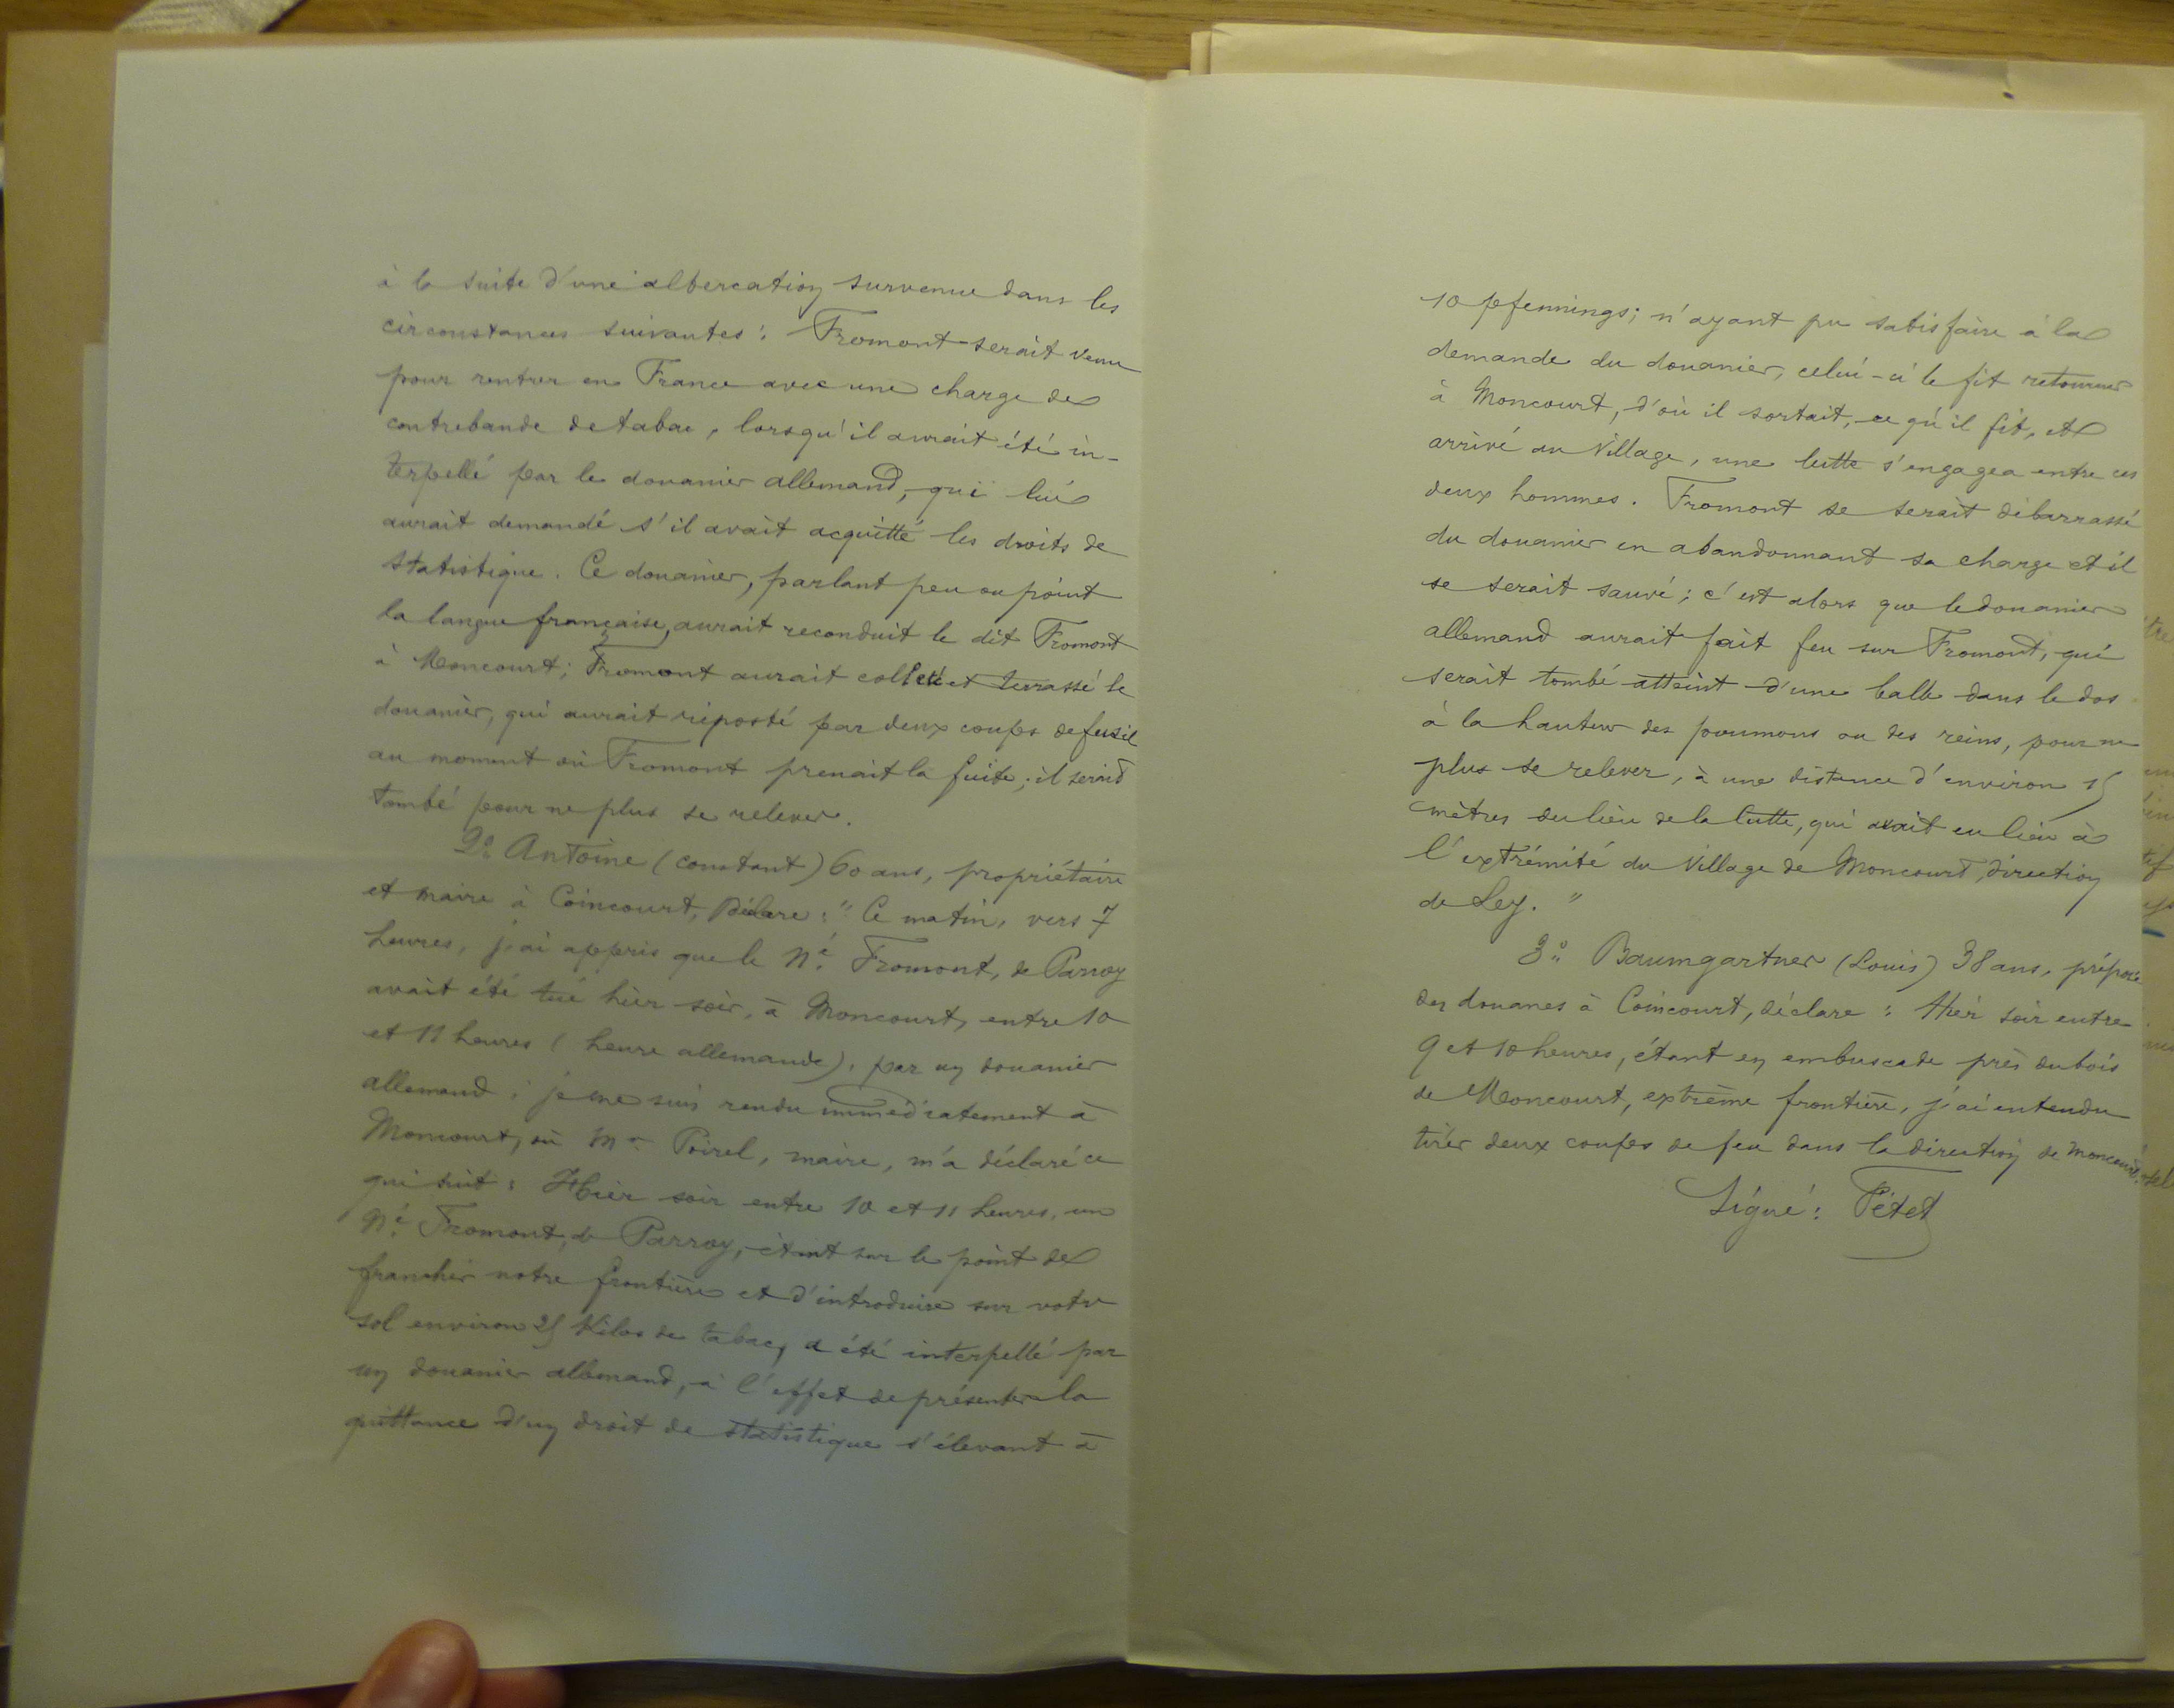 à la suite d'une altercation survenue dans les
circonstances suivantes : Fromont serait venu
pour rentrer en France avec une charge de
contrebande de tabac, lorsqu'il aurait été in-
terpellé par le douanier allemand, qui lui
aurait demandé s'il avait acquitté les droits de
statistique. Ce douanier, parlant peu ou point
la langue française, aurait reconduit le dit Fromont
à Moncourt ; Fromont aurait colleté et terrassé le
douanier, qui aurait riposté par deux coups de fusil
au moment où Fromont prenait la fuite ; il serait
tombé pour ne plus se relever.
2° Antoine (constant) 60 ans, propriétaire
et maire à Coincourt, Déclare : " Ce matin, vers 7
heures, j'ai appris que le né Fromont, de Parroy
avait été tué hier soir, à Moncourt, entre 10
et 11 heures (heure allemande), par un douanier
allemand ; je me suis rendu immédiatement à
Moncourt, où Mr Poirel, maire, m'a déclaré ce
qui suit : Hier soir entre 10 et 11 heures, un
né Fromont, de Parroy, étant sur le point de
franchir notre frontière et d'introduire sur votre
sol environ 25 Kilos de tabac, a été interpellé par
un douanier allemand, à l'effet de présenter la
quittance d'un droit de statistique s'élevant à
10 pfennings ; n'ayant pu satisfaire à la
demande du douanier, celui-ci le fit retourner
à Moncourt, d'où il sortait, ce qu'il fit, et
arrivé au Village, une lutte s'engagea entre ces
deux hommes. Fromont se serait débarrassé
du douanier en abandonnant sa charge et il
se serait sauvé ; c'est alors que le douanier
allemand aurait fait feu sur Fromont, qui
serait tombé atteint d'une balle dans le dos
à la hauteur des poumons ou des reins, pour ne
plus se relever, à une distance d'environ 15
mètres du lieu de la lutte, qui avait eu lieu à
l'extrémité du Village de Moncourt, direction
de Ley. "
3° Baumgartner (Louis) 38 ans, préposé
des douanes à Coincourt, déclare : Hier soir entre
9 et 10 heures, étant en embuscade près du bois
de Moncourt, extrème frontière, j'ai entendu
tirer deux coups de feu dans la direction de Moncourt.
Signé : Pétet